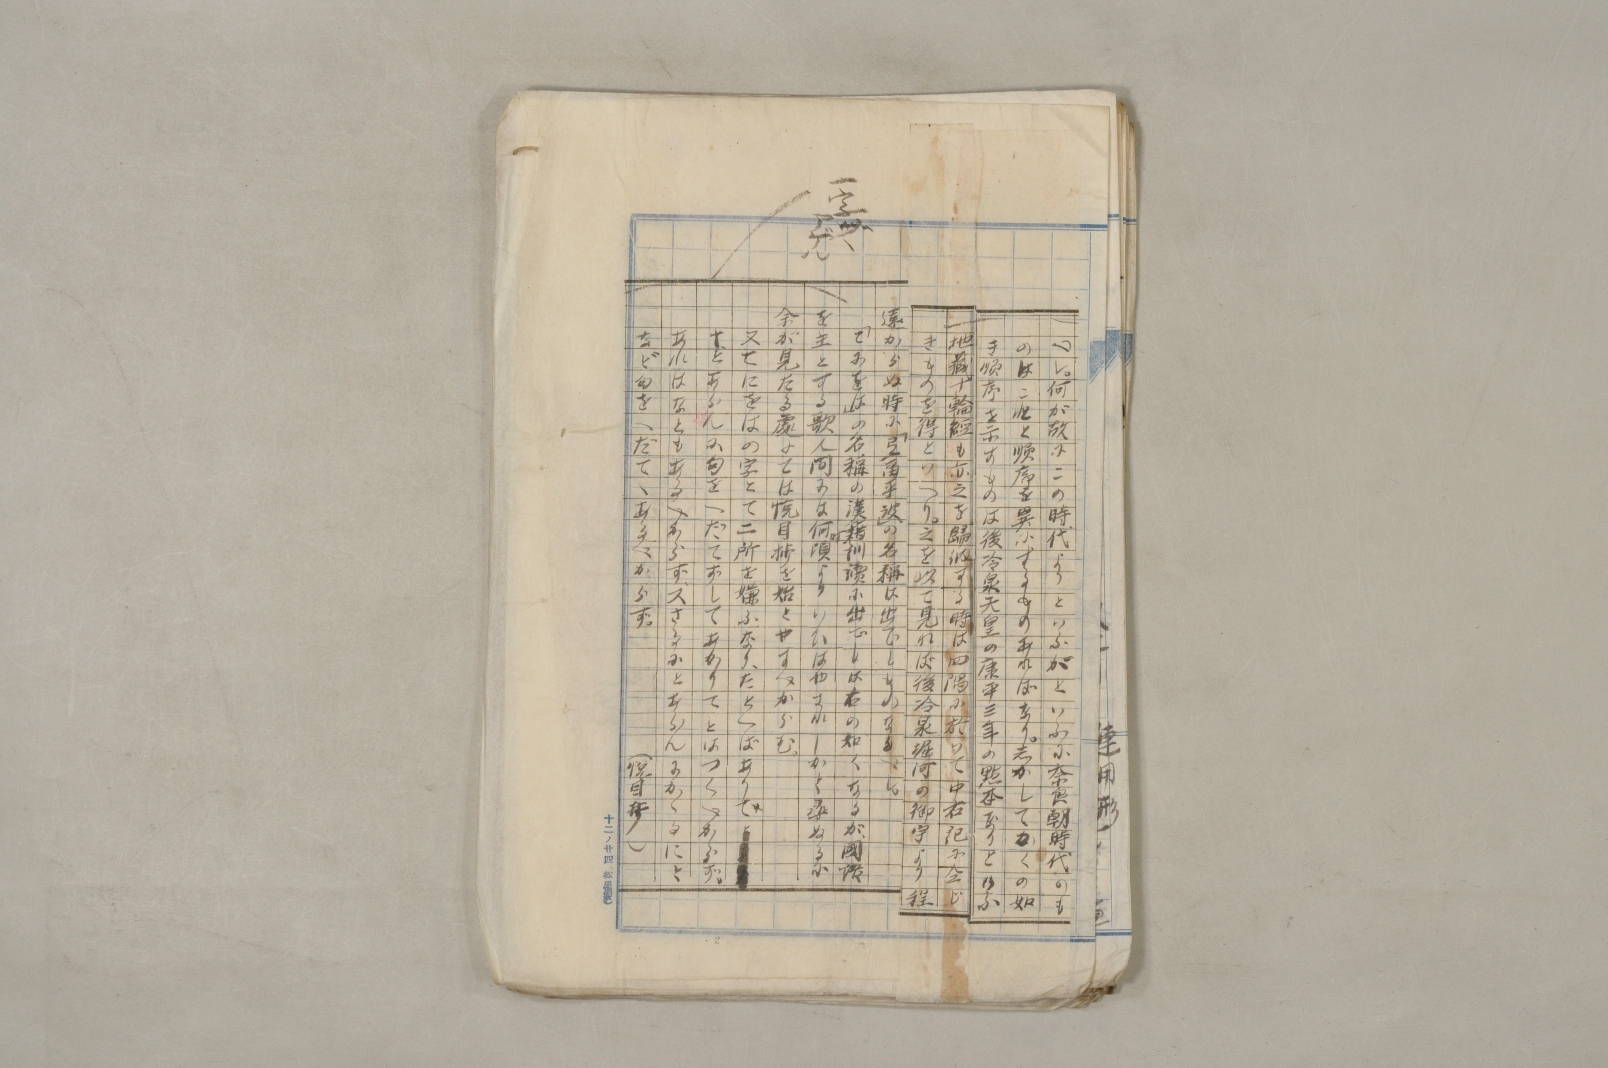 べし。何が故にこの時代よりといふがといふに奈良朝時代のも
のはこれと順序を異にするものあればなり。志かしてかくの如
き順序を示すものは後冷泉天皇の康平三年の點本なりといふ
地藏十輪經も亦之を歸納する時は四隅に於いて中右記に全じ
きものを得といへり。之を以て見れば後冷泉堀河の御宇より程
遠からぬ時に「弖爾乎波」の名稱は出でしものなるべし。
「てにをは」の名稱の漢籍訓讀に出でしは右の如くなるが、國語
を主とする歌人間には何頃よりいひはやされしかと尋ぬるに
余が見たる處にては悦目抄を始とやすべからむ。
又てにをはの字とて二所を嫌ふなり、たとへばありて、と
すとあらんに句をへだてずしてありてとはつくべからず。
あれはなともあるべからず、又さるにとあらんにかゝるにと
など句をへだてゝあるべからず。
(悦目抄)
一字
下ゲ
連用形
十二ノ廿四 松屋製